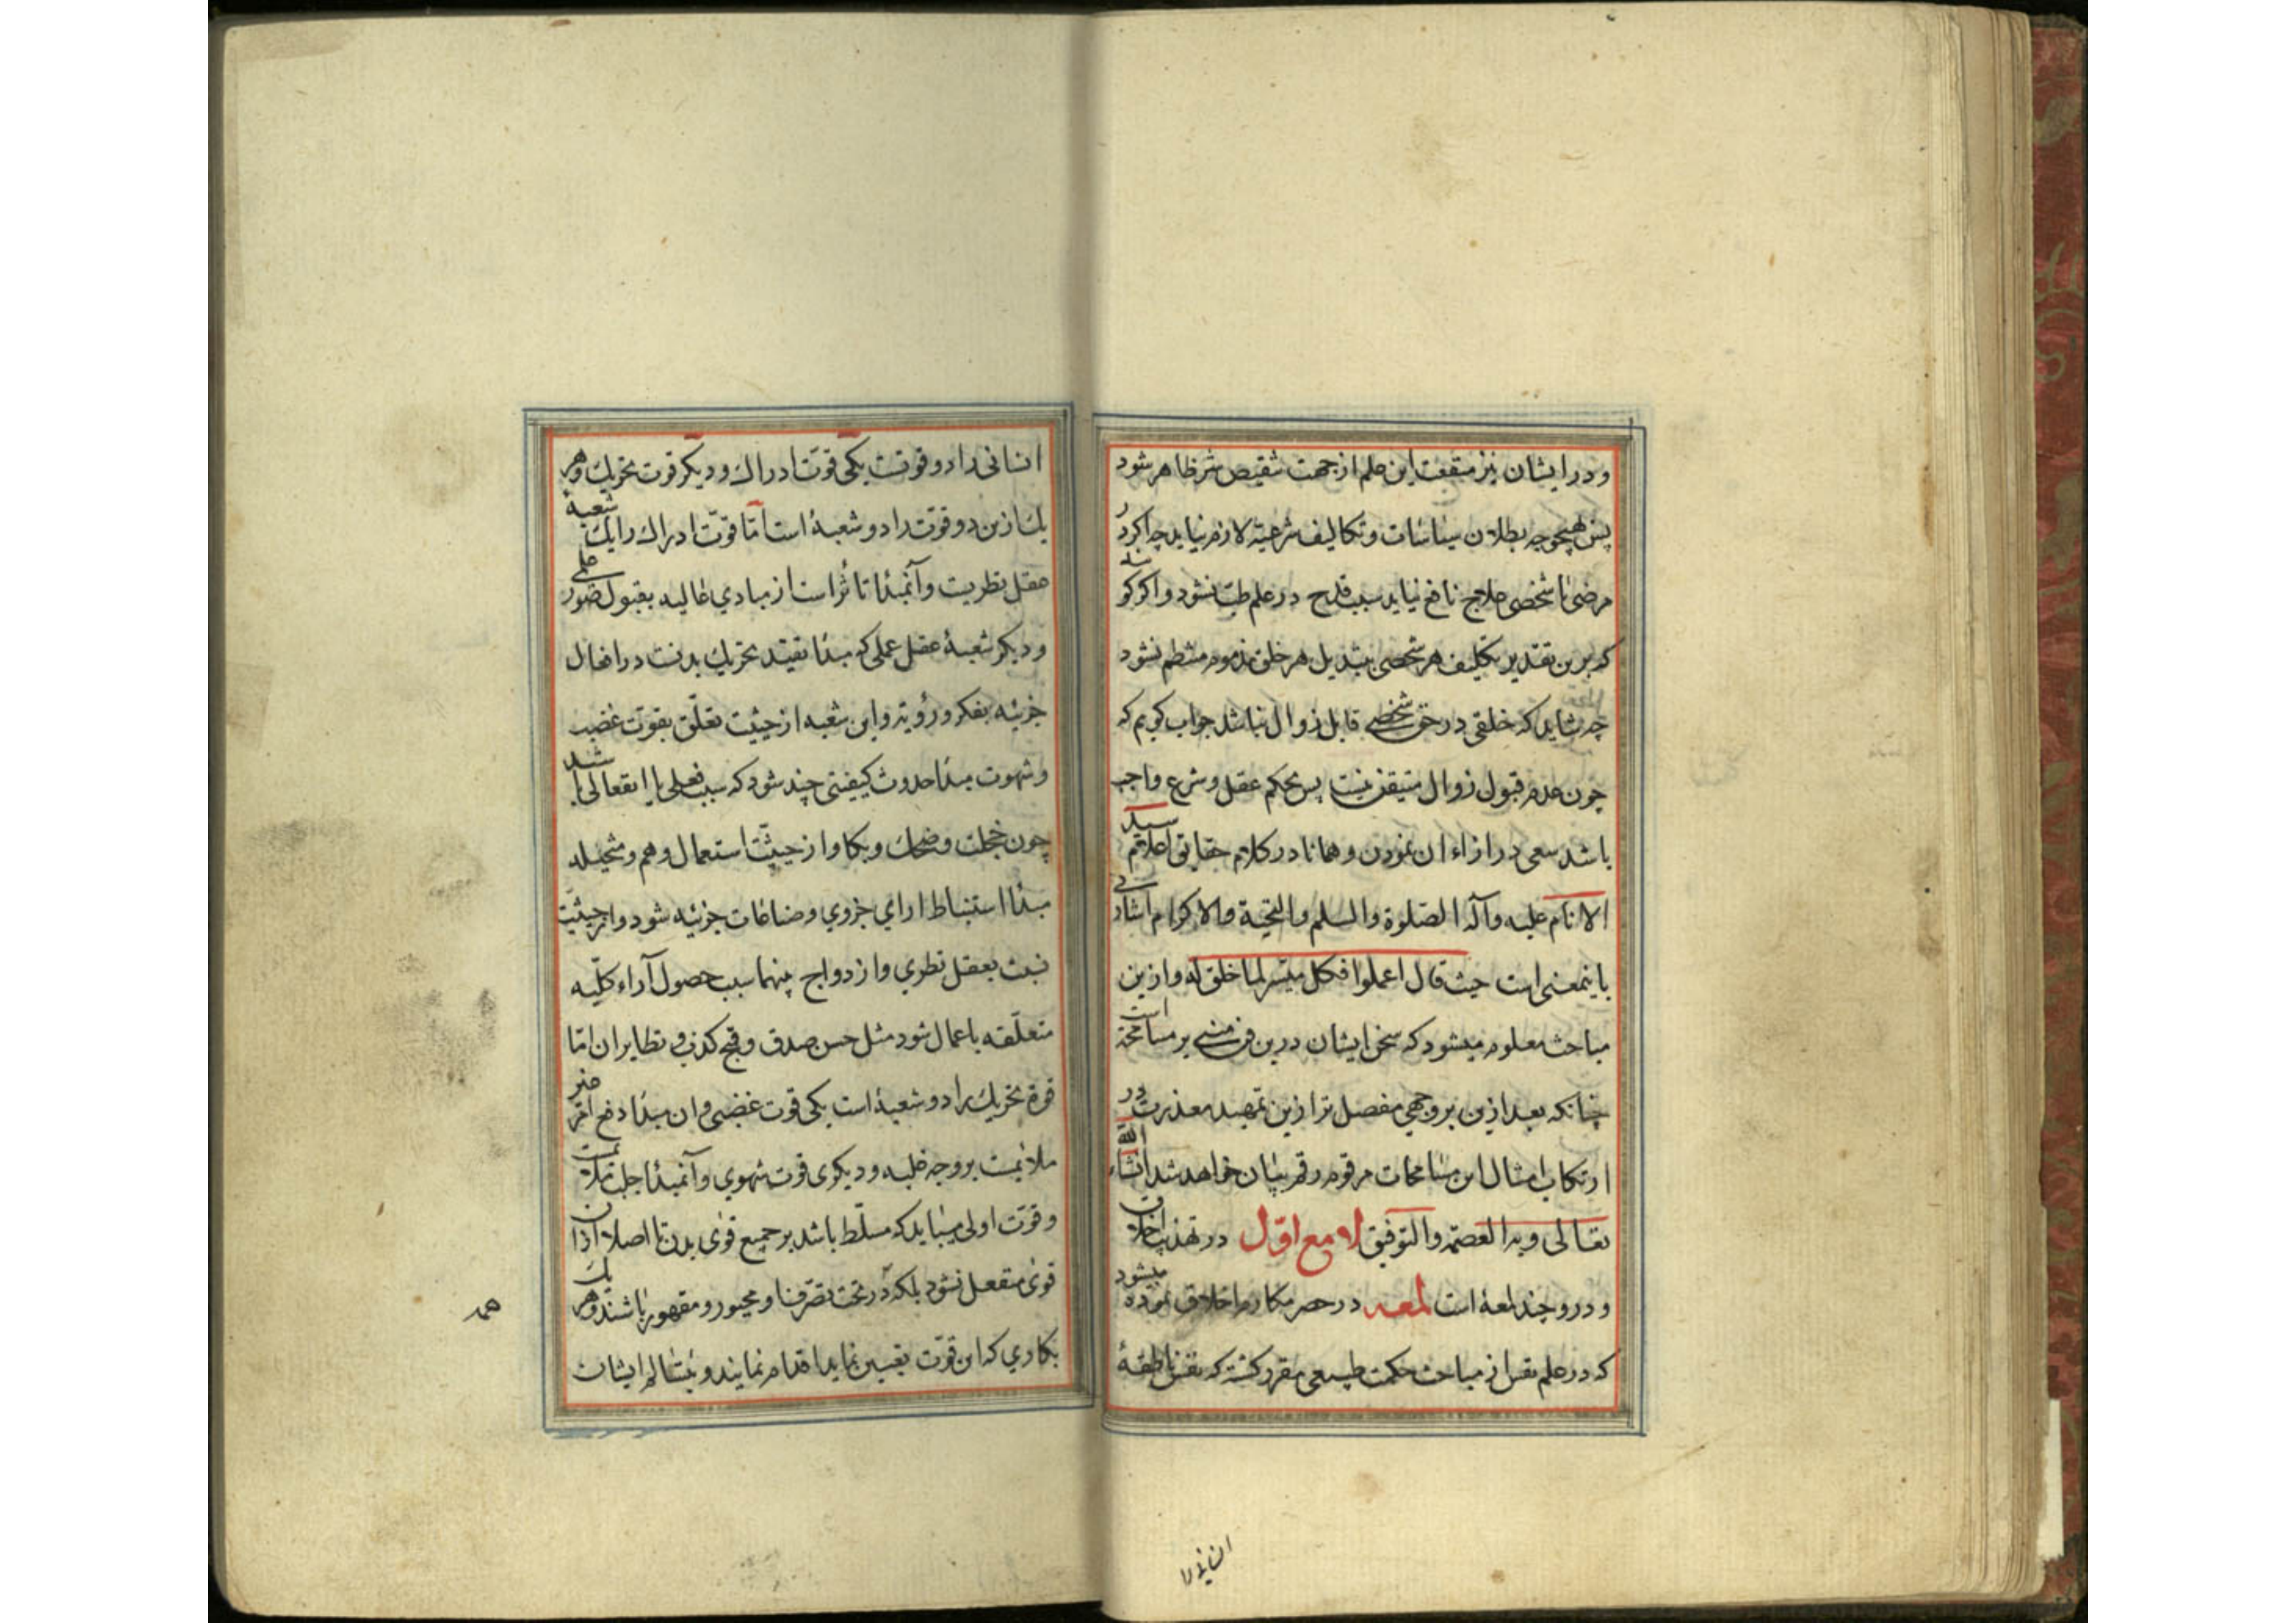 و در ایشان نیز منفعت این علم از جهت تنقیص شر ظاهر شود
پس بهیچوجه بطلان سیاسات و تکالیف شرعیّه لازم نیاید چه اکر در
مرضی یا شخصی علاج نافع نیاید سبب قدح در علم طبّ نشود و اکر کو
که برین تقدیر تکلیف هر شخصی بتبدیل هر خلق مذموم منتظم نشود
چه شاید که خلقی در حق شخصی قابل زوال نباشد جواب کویم که
چون عدم قبول زوال متیقن نیست پس بحکم عقل و شرع واجب
باشد سعی در ازاء ان نمودن و همانا در کلام حقایق اعلام سید
الانام علیه وآله الصّلوة والسلم والتحیة والاکرام اشارتی
باینمعنی است حیث قال اعملوا فکل میسّر لما خلق له و ازین
مباحث معلوم میشود که سخن ایشان درین فن مبنی بر مسامحة است
چنانکه بعد ازین بر وجهی مفصل تر ازین تمهید معذرت در
ارتکاب امثال این مسامحات مرقوم رقم بیان خواهد شد انشاء الله
تعالی و به العصمة والتوفیق لامع اوّل در تهذیب اخلاق
و در و چند لمعهٔ است لمعه در حصر مکارم اخلاق نموده میشود
که در علم نفس از مباحث حکمت طبیعی مقرر کشته که نفس ناطقهٔ
انسانی را
انسانی را دو قوتست یکی قوّت ادراك و دیکر قوت تحریك و هر
یك ازین دو قوّت را دو شعبهٔ است امّا قوّت ادراك را یك شعبهٔ
عقل نظریست و آنمبدٲ تاثّر است از مبادي عالیه بقبول صور علمی
و دیکر شعبهٔ عقل عملی که مبدٲ تحریك بدنست در افعال
جزئیه بفکر و رؤیة و این شعبه از حیثیت تعلّق بقوت غضب
و شهوت مبدٲ حدوث کیفیتی چند شود که سبب فعلی یا انفعالی باشد
چون خجلت و ضحك و بکا و از حیثیّت استعمال وهم و متخیله
مبدٲ استنباط ارای جزوي و صناعات جزئیه شود و از حیثیّت
نسبت بعقل نظري و ازدواج بینهما سبب حصول آراء کلّیه
متعلّقه باعمال شود مثل حسن صدق و قبح کذب و نظایر ان امّا
قوة تحریك را دو شعبهٔ است یکی قوت غضبی و ان مبدٲ دفع امر غیر
ملایمست بر وجه غلبه و دیکری قوت شهوي و آنمبدٲ جلب ملایمست
و قوّت اولی میباید که مسلّط باشد بر جمیع قوی بدن تا اصلا از ان
قوی منفعل نشود بلکه در تحت تصرّف او مجبور و مقهور باشند و هر یك
بکاري که این قوّت تعیین نماید اقدام نمایند و ایشان